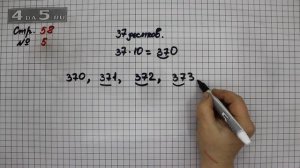 4DA5.RU
Стр. 58
№ 5
37 десятков.
37 · 10 = 370
370, 371, 372, 373,